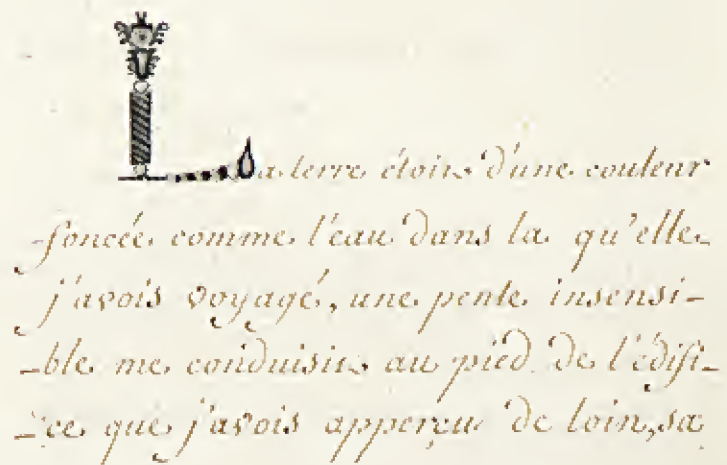 La terre étoit d'une couleur
foncée comme l'eau dans la qu'elle
j'avois voyagé, une pente insensi-
-ble me conduisit au pied de l'édifi-
-ce que j'avois apperçu de loin, sa